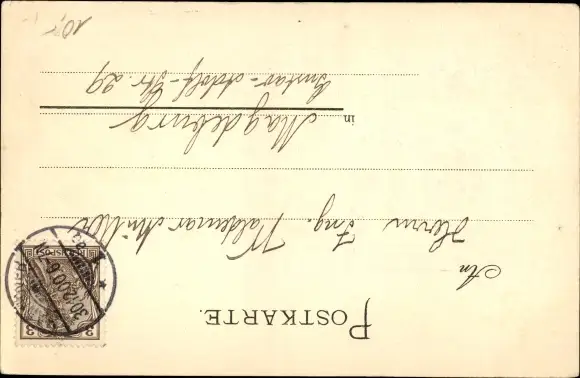 POSTKARTE.
An
Herrn Ing. Waldemar Müller
in Magdeburg
Gustav-Adolf-Str. 29
3
30.12.00.6-7N
10,-